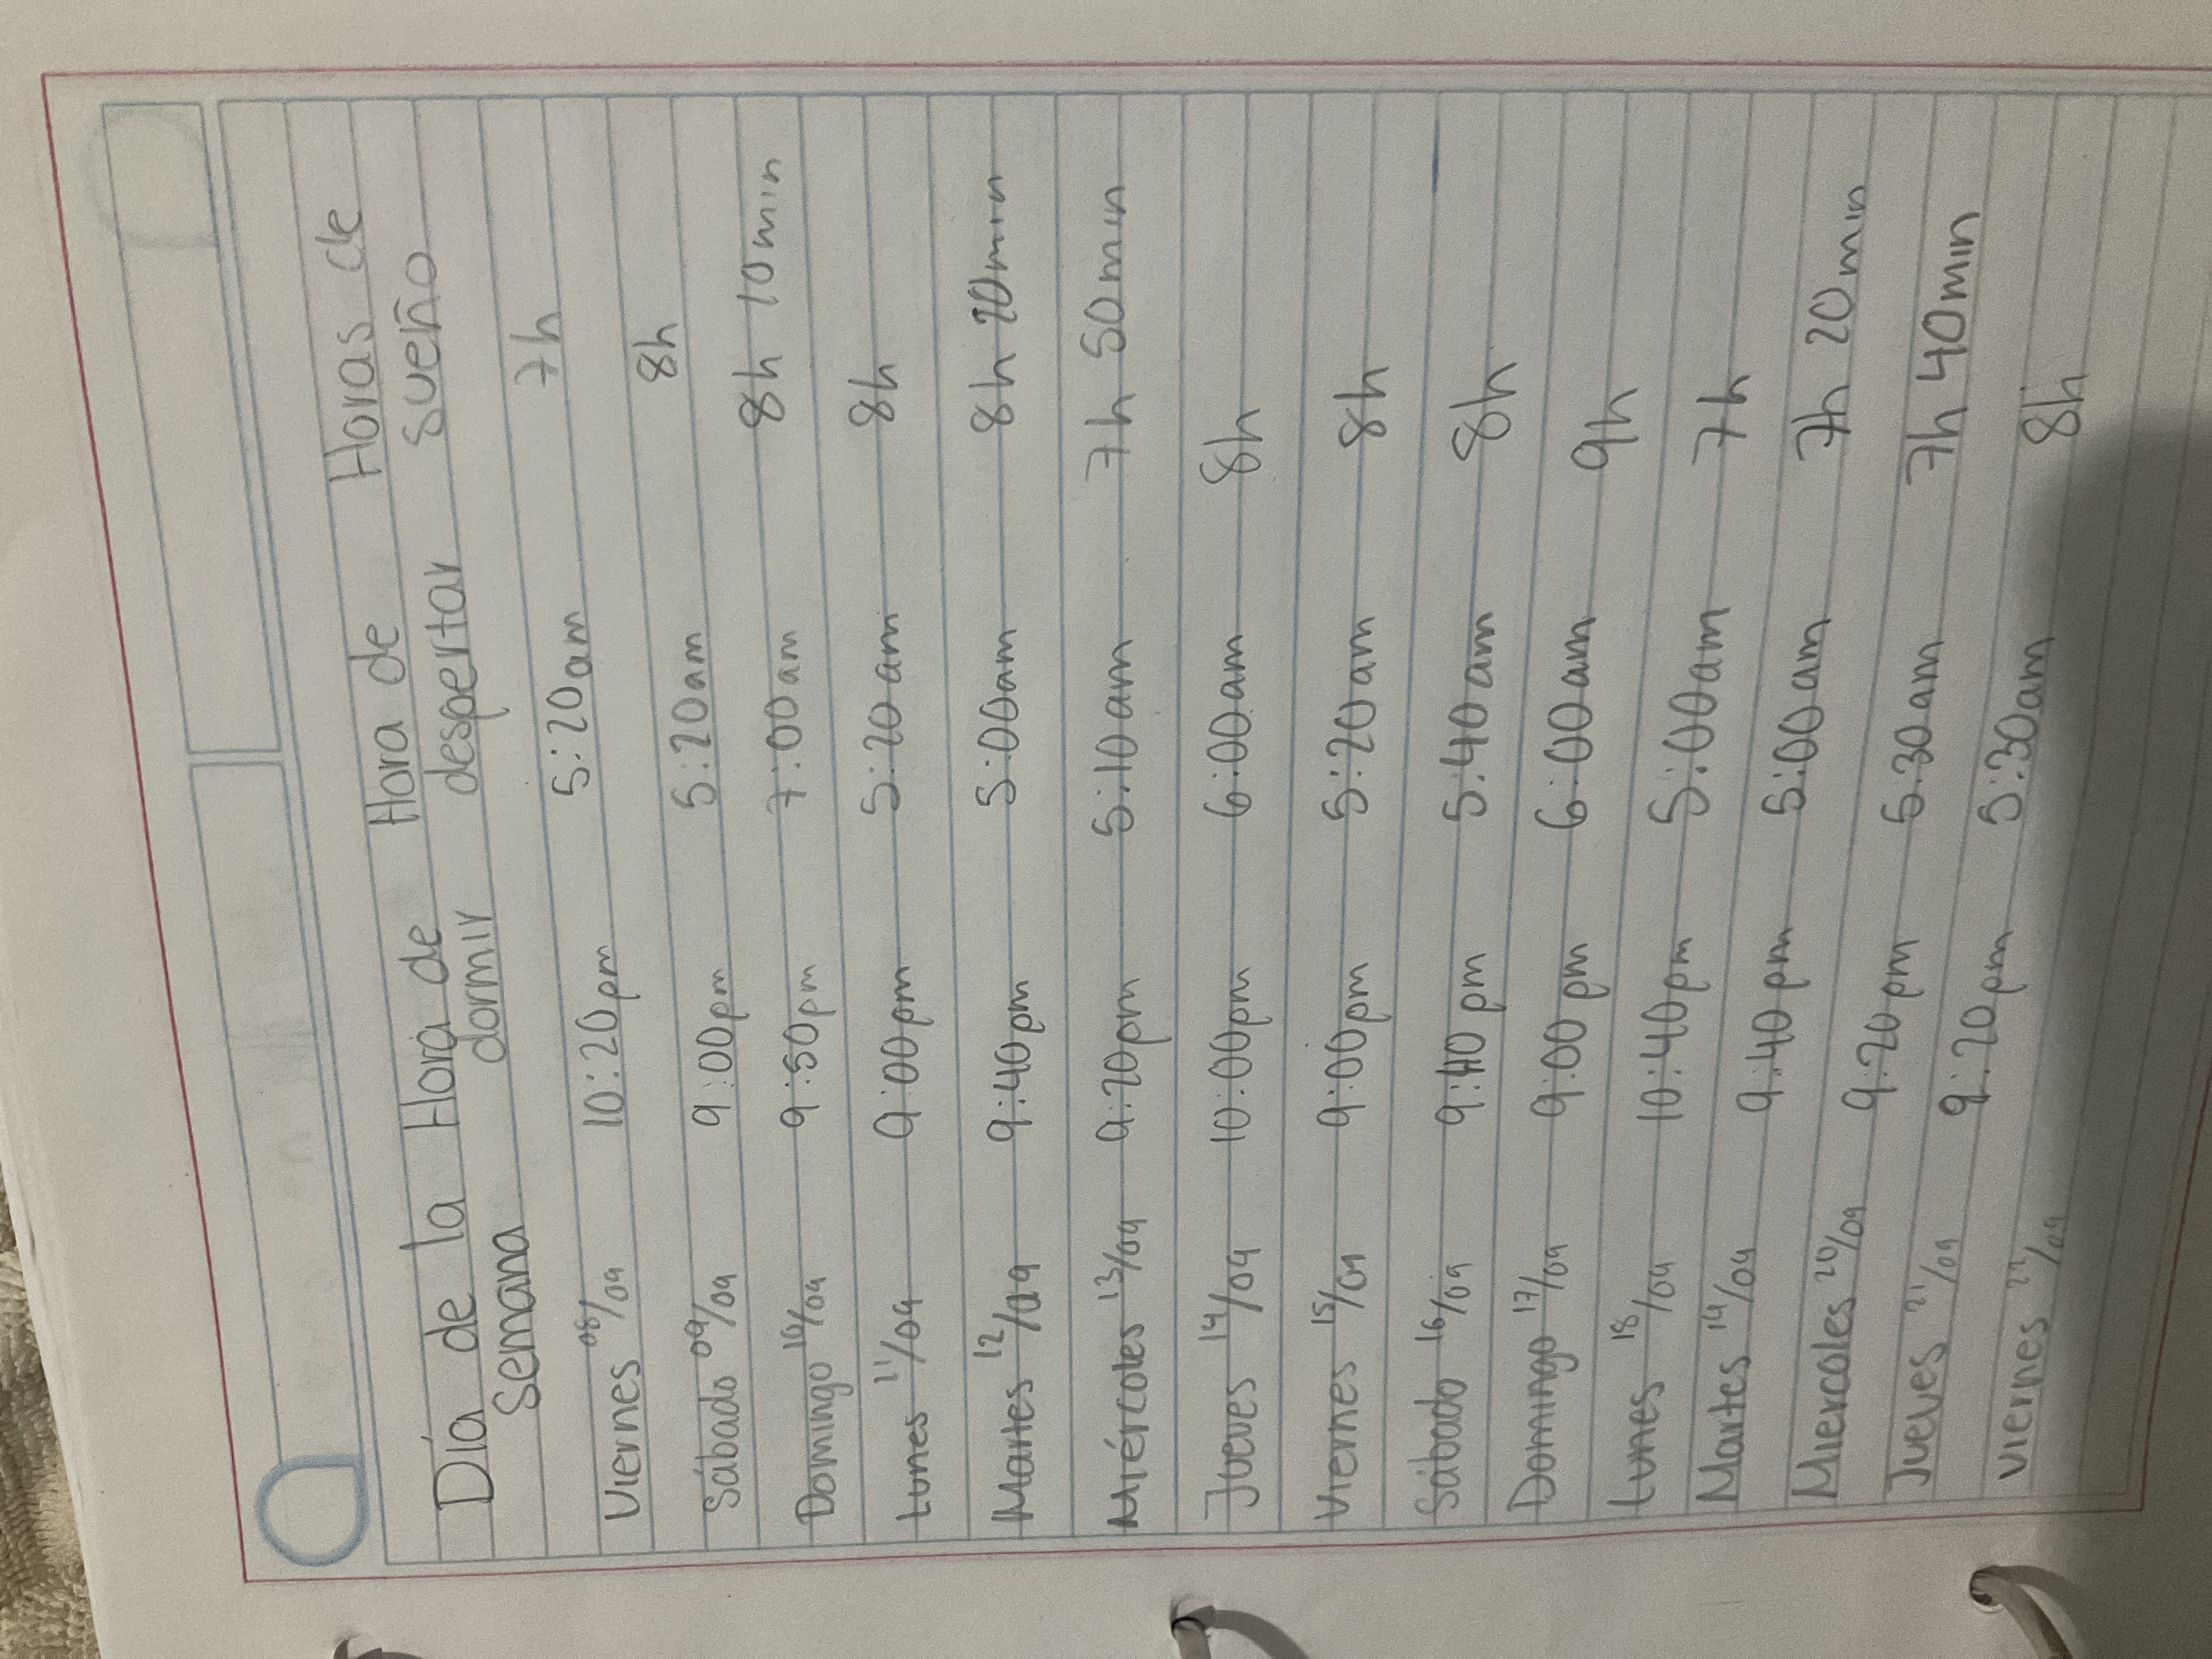 Día de la Hora de Hora de Horas de
semana dormir despertar sueño
Viernes 08/09 10:20pm 5:20am 7h
Sábado 09/09 9:00pm 5:20am 8h
Domingo 10/09 9:50pm 7:00am 8h 10min
Lunes 11/09 9:00pm 5:20am 8h
Martes 12/09 9:40pm 5:00am 8h 20min
Miércoles 13/09 9:20pm 5:10am 7h 50min
Jueves 14/09 10:00pm 6:00am 8h
Viernes 15/09 9:00pm 5:20am 8h
Sábado 16/09 9:40pm 5:40am 8h
Domingo 17/09 9:00pm 6:00am 9h
Lunes 18/09 10:40pm 5:00am 7h
Martes 19/09 9:40pm 5:00am 7h 20min
Miercoles 20/09 9:20pm 5:30am 7h 40min
Jueves 21/09 9:20pm 5:30am 8h
Viernes 22/09